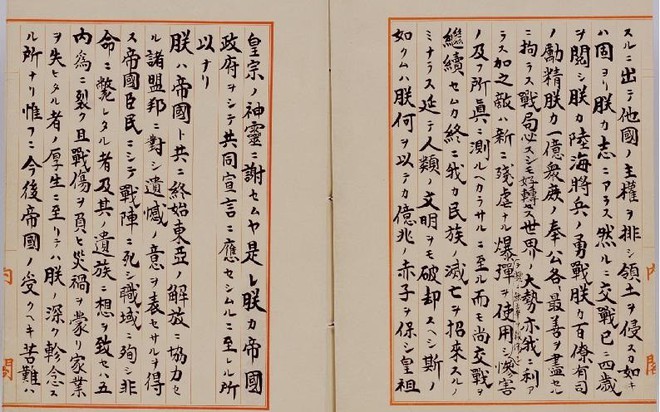 スルニ出テ他國ノ主權ヲ排シ領土ヲ侵スカ如キ
ハ固ヨリ朕カ志ニアラス然ルニ交戰已ニ四歳
ヲ閲シ朕カ陸海將兵ノ勇戰朕カ百僚有司
ノ勵精朕カ一億衆庶ノ奉公各〻最善ヲ盡セル
ニ拘ラス戰局必スシモ好轉セス世界ノ大勢亦我ニ利ア
ラス加之敵ハ新ニ殘虐ナル爆彈ヲ使用シ慘害
ノ及フ所眞ニ測ルヘカラサルニ至ル而モ尚交戰ヲ
繼續セムカ終ニ我カ民族ノ滅亡ヲ招來スルノ
ミナラス延テ人類ノ文明ヲモ破却スヘシ斯ノ
如クムハ朕何ヲ以テカ億兆ノ赤子ヲ保シ皇祖
皇宗ノ神靈ニ謝セムヤ是レ朕カ帝國
政府ヲシテ共同宣言ニ應セシムルニ至レル所
以ナリ
朕ハ帝國ト共ニ終始東亞ノ解放ニ協力セ
ル諸盟邦ニ對シ遺憾ノ意ヲ表セサルヲ得
ス帝國臣民ニシテ戰陣ニ死シ職域ニ殉シ非
命ニ斃レタル者及其ノ遺族ニ想ヲ致セハ五
内爲ニ裂ク且戰傷ヲ負ヒ災禍ヲ蒙リ家業
ヲ失ヒタル者ノ厚生ニ至リテハ朕ノ深ク軫念ス
ル所ナリ惟フニ今後帝國ノ受クヘキ苦難ハ
内閣
内閣